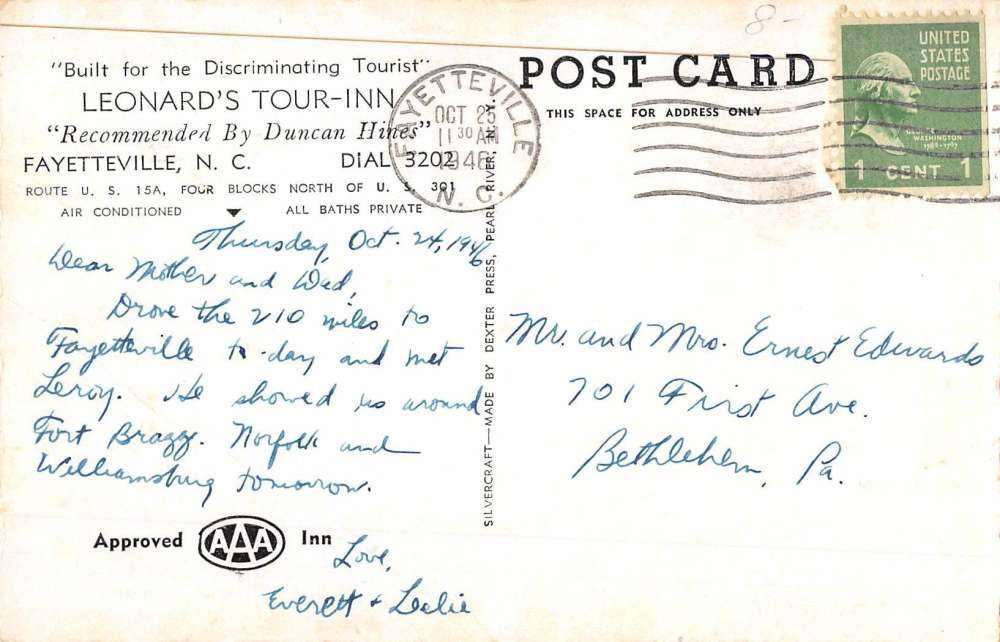 8-
"Built for the Discriminating Tourist"
LEONARD'S TOUR-INN
"Recommended By Duncan Hines"
FAYETTEVILLE, N. C. DIAL 3202
ROUTE U. S. 15A, FOUR BLOCKS NORTH OF U. S. 301
AIR CONDITIONED ALL BATHS PRIVATE
Thursday, Oct. 24, 1946
Dear Mother and Dad,
Drove the 210 miles to
Fayetteville to-day and met
Leroy. He showed us around
Fort Bragg. Norfolk and
Williamsburg tomorrow.
Approved AAA Inn
Love,
Everett + Leslie
FAYETTEVILLE
OCT 25
11 30 AM
1946
N. C.
SILVERCRAFT—MADE BY DEXTER PRESS, PEARL RIVER, N. Y.
POST CARD
THIS SPACE FOR ADDRESS ONLY
UNITED
STATES
POSTAGE
GEORGE
WASHINGTON
1789-1797
1 CENT 1
Mr. and Mrs. Ernest Edwards
701 First Ave.
Bethlehem, Pa.